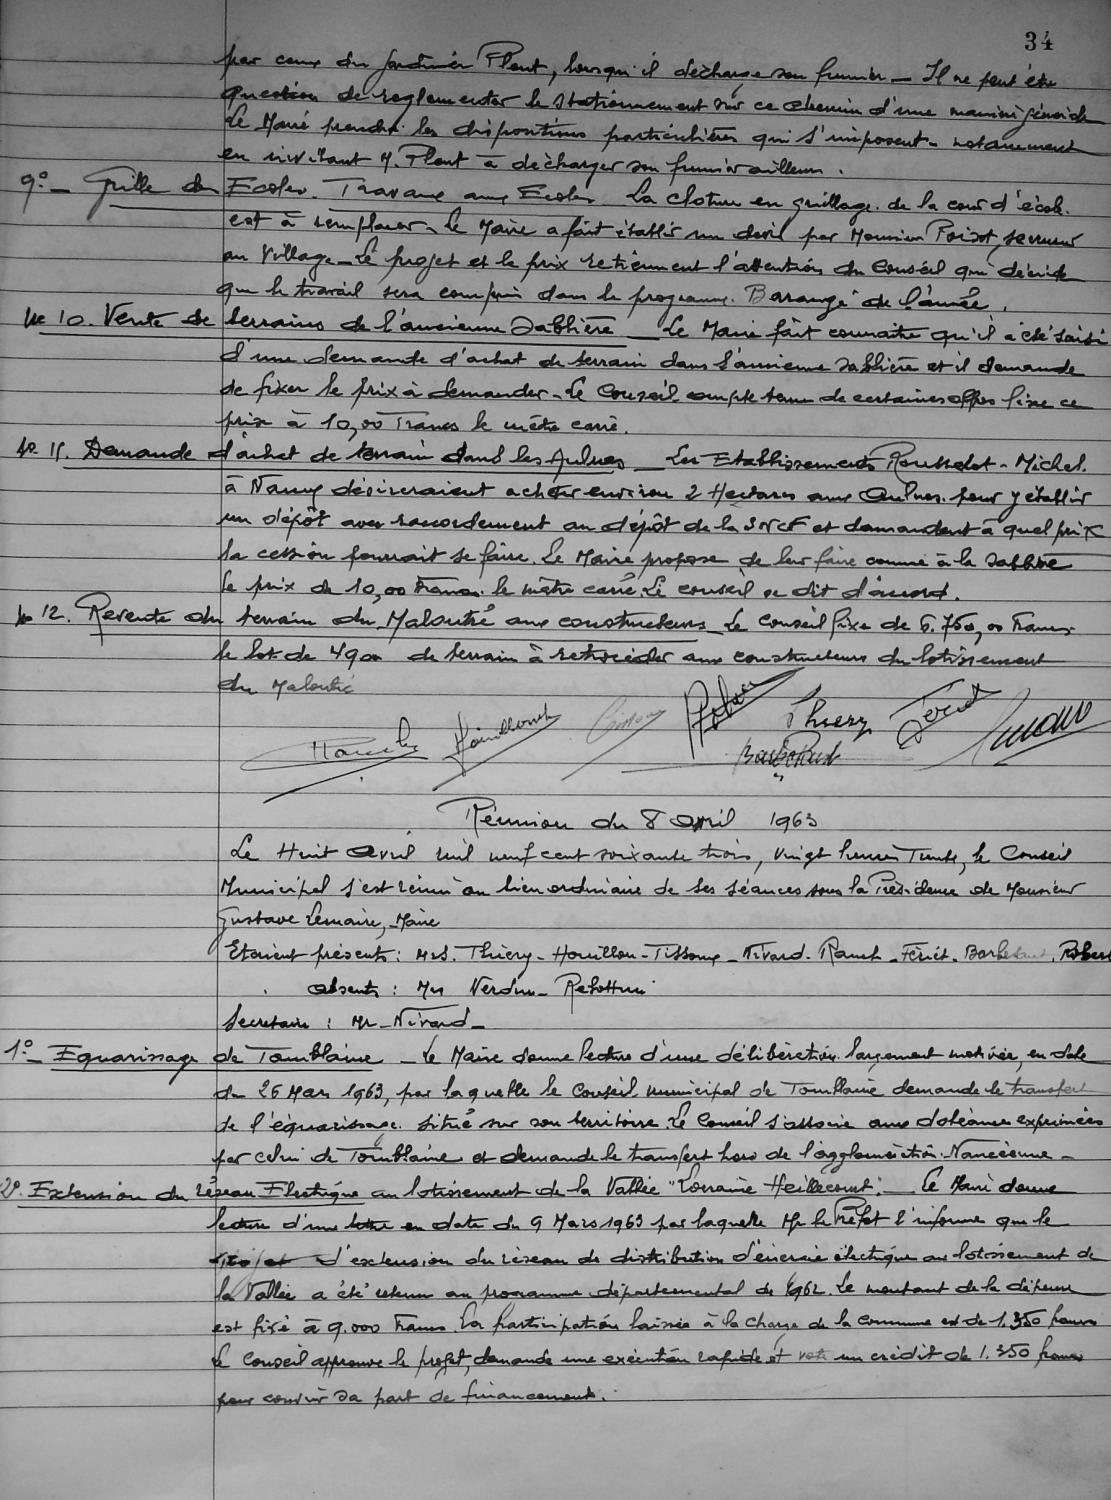 34
par ceux du jardinier Plent, lorsqu'il décharge son fumier _ Il ne peut être
question de reglementer le stationnement sur ce chemin d'une manière générale
Le Maire prendra les dispositions particulières qui s'imposent - notamment
en invitant M. Plent à décharger son fumier ailleurs.
9°_ Grille des Ecoles. Travaux aux Ecoles. La cloture en grillage de la cour d'école
est à remplacer. Le Maire a fait établir un devis par Monsieur Poirot serrurier
au Village _ Le projet et le prix retiennent l'attention du Conseil qui décide
que le travail sera compris dans le programme Barangé de l'année.
No 10. Vente de terrains de l'ancienne Sablière _ Le Maire fait connaitre qu'il a été saisi
d'une demande d'achat de terrain dans l'ancienne sablière et il demande
de fixer le prix à demander - Le Conseil compte tenu de certaines offres fixe ce
prix à 10,00 Francs le mètre carré.
No 11. Demande d'achat de terrain dans les Aulnes _ Les Etablissements Rousselot - Michel
à Nancy désireraient acheter environ 2 Hectares aux Aulnes pour y établir
un dépôt avec raccordement au dépôt de la SNCF et demandent à quel prix
la cession pourrait se faire. Le Maire propose de leur faire comme à la sablière
le prix de 10,00 Francs le mètre carré. Le conseil se dit d'accord.
No 12. Revente du terrain du Maloutié aux constructeurs _ Le Conseil fixe de 6.750,00 Francs
le lot de 490 de terrain à retrocéder aux constructeurs du lotissement
du Maloutié
Thiery
Réunion du 8 Avril 1963
Le Huit Avril mil neuf cent soixante trois, vingt heures Trente, le Conseil
Municipal s'est réuni au lieu ordinaire de ses séances sous la Présidence de Monsieur
Gustave Lemaire, Maire
Etaient présents : Mrs. Thiery - Houillon - Tissoux - Nivard - Rauch - Fériet - Barbesant, Robert
Absents : Mrs Verdun -
Secretaire : Mr - Nivard _
1°_ Equarissage de Tomblaine _ Le Maire donne lecture d'une délibération largement motivée, en date
du 26 Mars 1963, par laquelle le Conseil municipal de Tomblaine demande le transfert
de l'équarissage situé sur son territoire. Le Conseil s'associe aux doléances exprimées
par celui de Tomblaine et demande le transfert hors de l'agglomération Nancéienne _
2°. Extension du réseau Electrique au lotissement de la Vallée "Lorraine Heillecourt" _ Le Maire donne
lecture d'une lettre en date du 9 Mars 1963 par laquelle Mr le Préfet l'informe que le
projet d'extension du réseau de distribution d'énergie électrique au lotissement de
la Vallée a été retenu au programme départemental de 1962. Le montant de la dépense
est fixé à 9.000 Francs. La participation laissée à la charge de la commune est de 1.350 francs
Le Conseil approuve le projet, demande une exécution rapide et vote un crédit de 1.350 francs
pour couvrir sa part de financement.